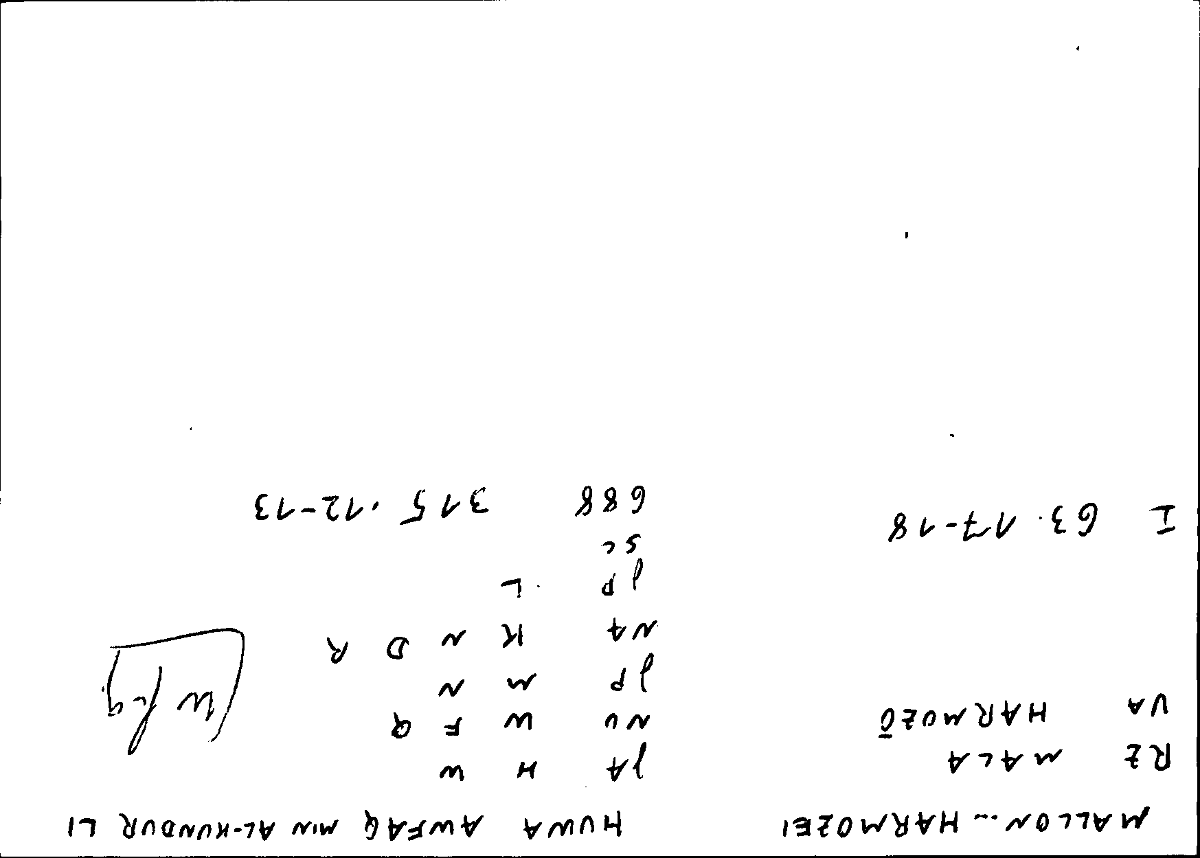 MALLON... HARMOZEI HUWA AWFAQ MIN AL-KUNDUR LI
RZ MALA JA H W
VA HARMOZŌ NU W F Q
JP M N
wfq
NA K N D R
JP L
SC
I 63.17-18 688 315.12-13